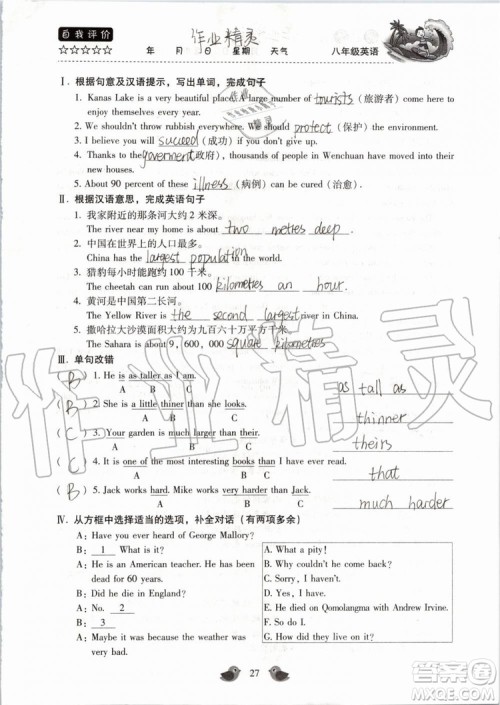 自我评价
☆☆☆☆☆
作业精灵
年 月 日 星期 天气
八年级英语
Ⅰ. 根据句意及汉语提示,写出单词,完成句子
1. Kanas Lake is a very beautiful place. A large number of tourists (旅游者) come here to
enjoy themselves every year.
2. We shouldn't throw rubbish everywhere. We should protect (保护) the environment.
3. I believe you will succeed if you don't give up.
4. Thanks to the government (政府), thousands of people in Wenchuan have moved into their
new houses.
5. About 90 percent of these illness (病例) can be cured (治愈).
Ⅱ. 根据汉语意思,完成英语句子
1. 我家附近的那条河大约 2 米深。
The river near my home is about two metres deep.
2. 中国在世界上的人口最多。
China has the largest population in the world.
3. 猎豹每小时能跑约 100 千米。
The cheetah can run about 100 kilometres an hour.
4. 黄河是中国第二长河。
The Yellow River is the second largest river in China.
5. 撒哈拉大沙漠面积大约为九百六十万平方千米。
The Sahara is about 9, 600, 000 square kilometres
Ⅲ. 单句改错
(B) 1. He is as taller as I am. as tall as
A B C
(B) 2. She is a little thiner than she looks. thinner
A B C
(C) 3. Your garden is much larger than their. theirs
A B C
(C) 4. It is one of the most interesting books than I have read. that
A B C
(B) 5. Jack works hard. Mike works very harder than Jack. much harder
A B C
Ⅳ. 从方框中选择适当的选项,补全对话(有两项多余)
A: Have you ever heard of George Mallory?
B: 1 What is it?
A: He is an American teacher. He is dead
for 60 years.
B: Did he die in England?
A: No. 2
B: 3
A: Maybe it was because the weather was
very bad.
A. What a pity!
B. Yes, I have.
C. Sorry, I haven't.
D. How did he die?
E. He died on Qomolangma with Andrew Irvine.
F. What happened?
G. How did they live on it?
27
作业精灵
答案圈
MXQE.COM